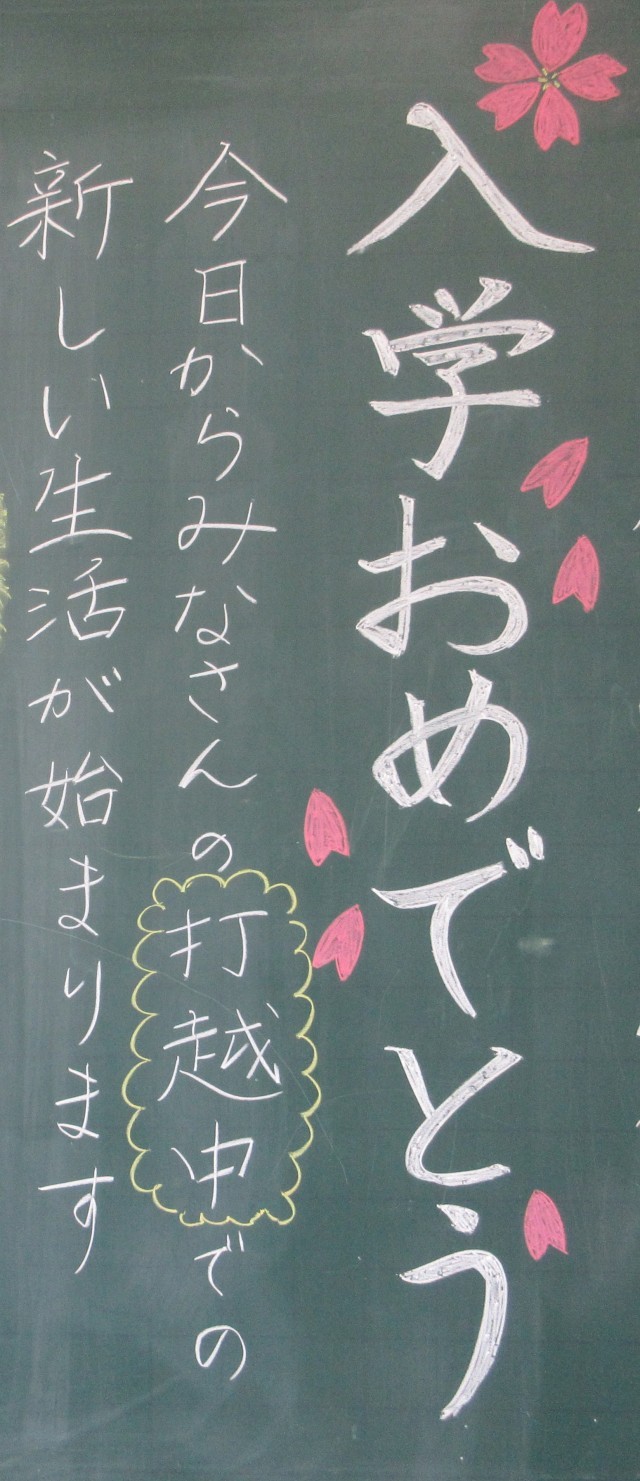 入学おめでとう
今日からみなさんの打越中での
新しい生活が始まります